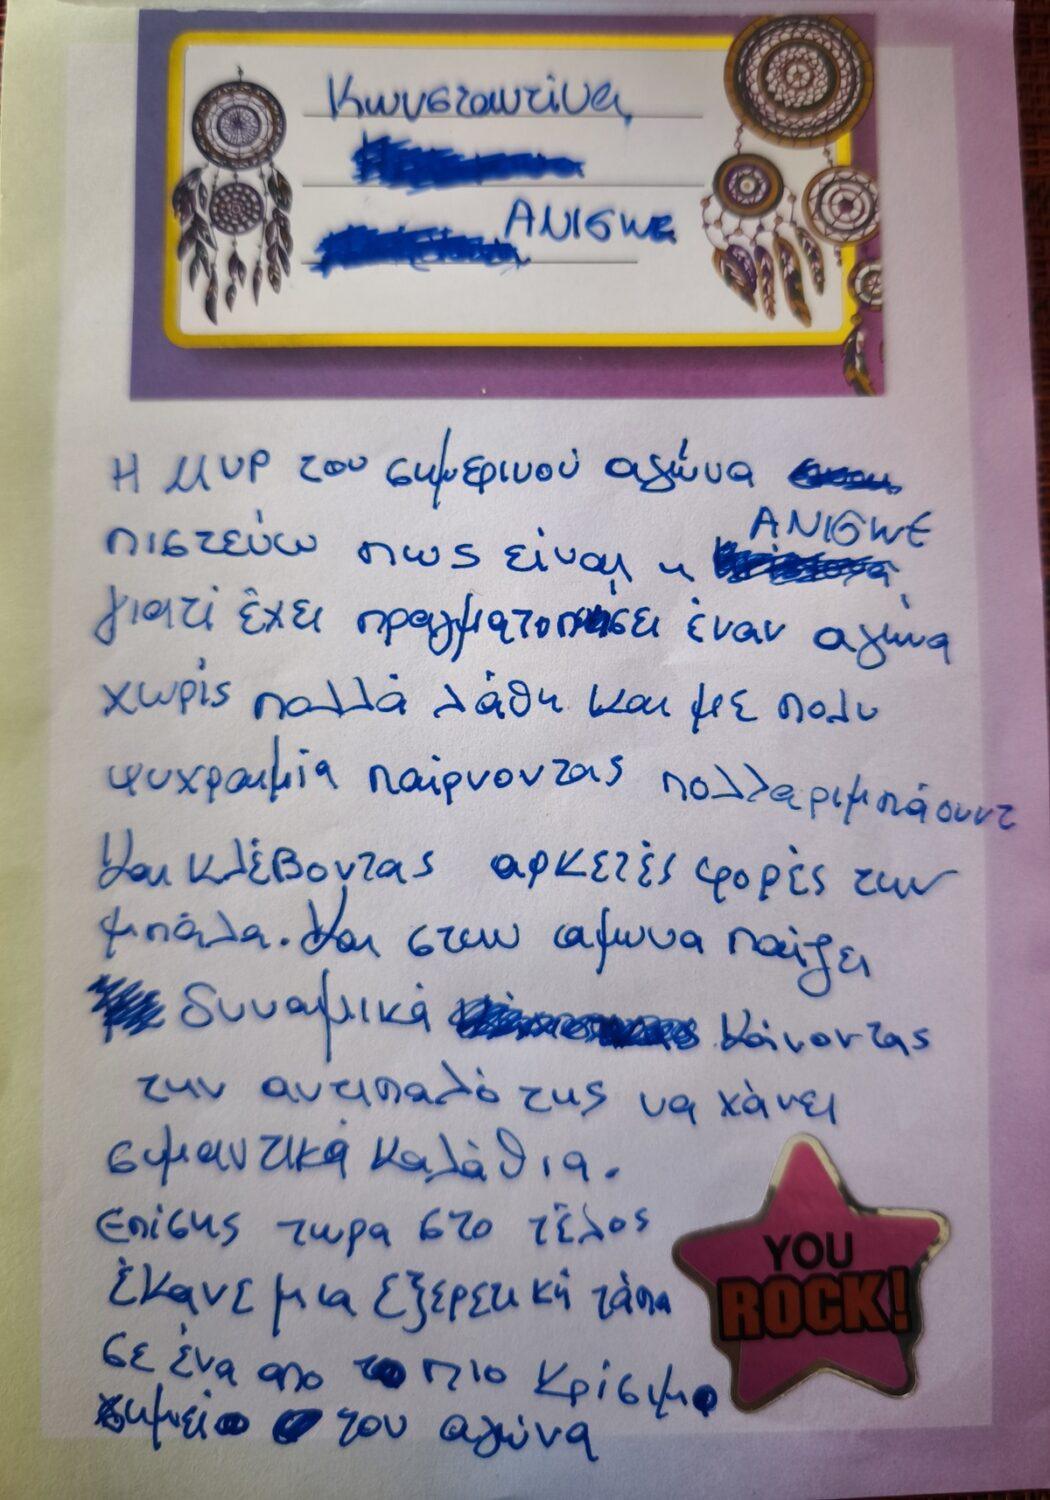 Κωνσταντίνα
ΑΝΙGWE
Η MVP του σημερινού αγώνα
πιστεύω πως είναι η ΑΝΙGWE
γιατί έχει πραγματοποιήσει έναν αγώνα
χωρίς πολλά λάθη και με πολυ
ψυχραιμία παίρνοντας πολλα ριμπάουντ
και κλέβοντας αρκετές φορές την
μπάλα. Και στην αμυνα παίζει
δυναμικά κάνοντας
την αντιπαλό της να χάνει
σημαντικά καλάθια.
Επίσης τωρα στο τέλος
έκανε μια εξερετική τάπα
σε ένα απο τα πιο κρίσιμα
σημεία του αγώνα
YOU
ROCK!